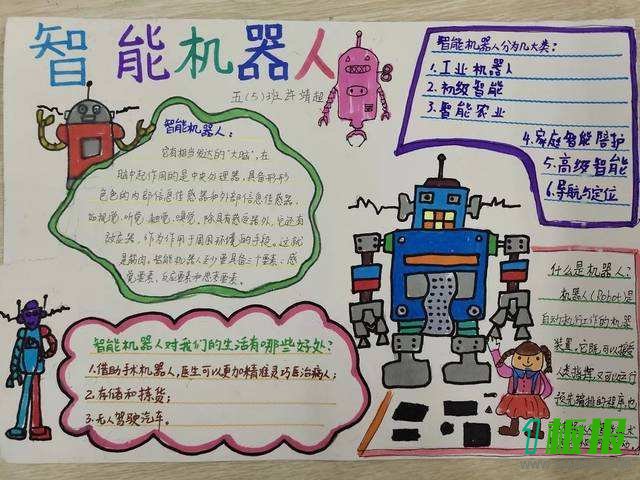 智能机器人
五(5)班许靖超
智能机器人:
它有相当发达的“大脑”,在
脑中起作用的是中央处理器,具备形形
色色的内部信息传感器和外部信息传感器,
如视觉、听觉、触觉、嗅觉。除具有感受器外,它还有
效应器,作为作用于周围环境的手段。这就
是筋肉。智能机器人至少要具备三个要素:感
觉要素,反应要素和思考要素。
智能机器人分为几大类:
1.工业机器人
2.初级智能
3.智能农业
4.家庭智能陪护
5.高级智能
6.导航与定位
智能机器人对我们的生活有哪些好处?
1.借助手术机器人,医生可以更加精准灵巧医治病人;
2.存储和拣货;
3.无人驾驶汽车。
什么是机器人?
机器人(Robot)是
自动执行工作的机器
装置。它既可以接受
人类指挥,又可以运行
预先编排的程序,也
板报